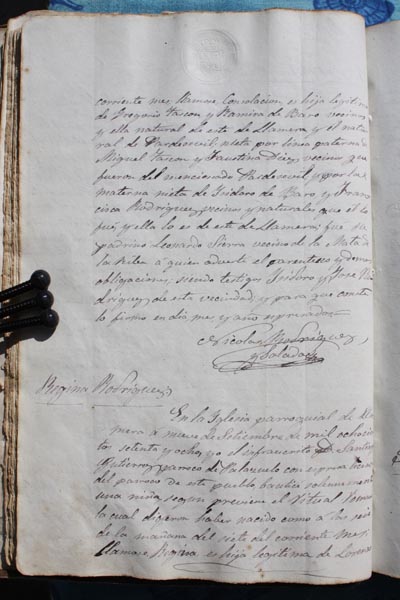 corriente mes llamose Consolacion es hija legitima
de Gregorio Tascon y Ramira de Baro vecinos
y ella natural de este de Llamera y el natu
ral de Pardesivil nieta por linea paterna de
Miguel Tascon y Faustina Diez, vecinos que
fueron del mencionado Pardesivil y por la
materna nieta de Isidoro de Baro y Fran
cisca Rodriguez, vecinos y naturales que el lo
fue, y ella lo es de este de Llamera; fue su
padrino Leonardo Sierra vecino de la Mata de
la Riba a quien adverti el parentesco y demas
obligaciones, siendo testigos Isidoro y Jose Ro
driguez, de esta vecindad y para que conste
lo firmo en dia mes y año espresados
Nicolas Rodriguez
Regina Rodriguez
En la Iglesia parroquial de Lla
mera a nueve de Setiembre de mil ochocien
tos setenta y ocho, yo el infraescrito Santiago
Gutierrez parroco de Palazuelo con espresa licencia
del parroco de este pueblo bautice solemnemente
una niña segun previene el Ritual Romano
la cual digeron haber nacido como a las seis
de la mañana del siete del corriente mes,
llamose Regina es hija legitima de Lorenzo